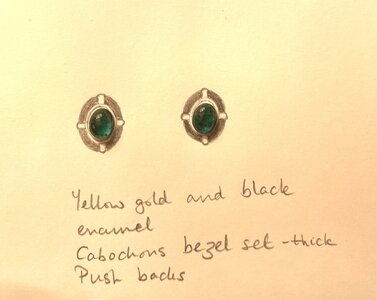 Yellow gold and black
enamel
Cabochons bezel set - thick
Push backs